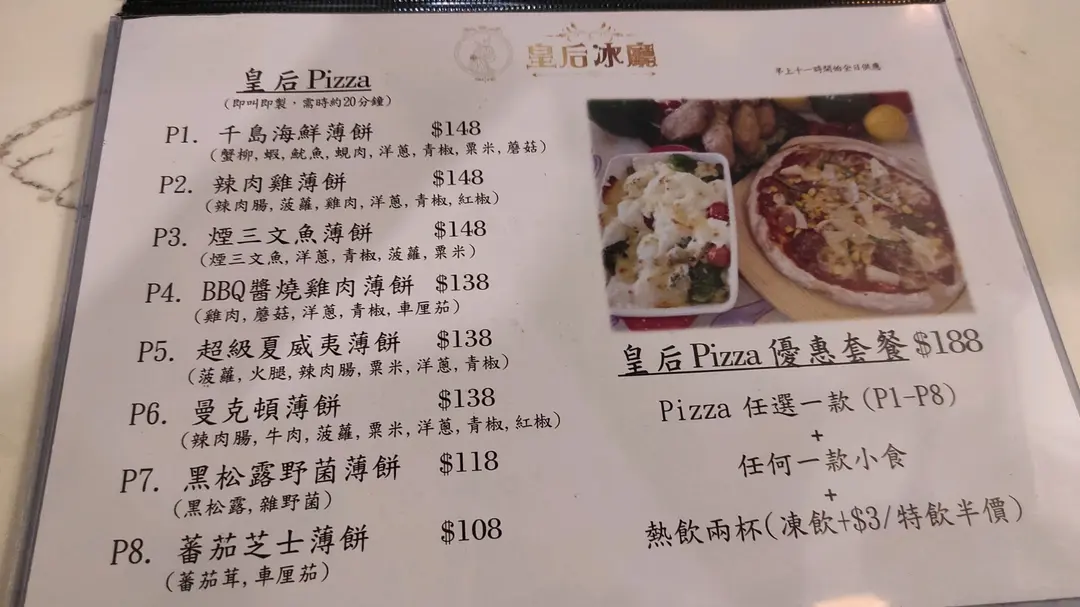 皇后冰廳
早上十一時開始全日供應
皇后 Pizza
(即叫即製，需時約20分鐘)
P1. 千島海鮮薄餅 $148
(蟹柳, 蝦, 魷魚, 蜆肉, 洋蔥, 青椒, 粟米, 蘑菇)
P2. 辣肉雞薄餅 $148
(辣肉腸, 菠蘿, 雞肉, 洋蔥, 青椒, 紅椒)
P3. 煙三文魚薄餅 $148
(煙三文魚, 洋蔥, 青椒, 菠蘿, 粟米)
P4. BBQ醬燒雞肉薄餅 $138
(雞肉, 蘑菇, 洋蔥, 青椒, 車厘茄)
P5. 超級夏威夷薄餅 $138
(菠蘿, 火腿, 辣肉腸, 粟米, 洋蔥, 青椒)
P6. 曼克頓薄餅 $138
(辣肉腸, 牛肉, 菠蘿, 粟米, 洋蔥, 青椒, 紅椒)
P7. 黑松露野菌薄餅 $118
(黑松露, 雜野菌)
P8. 蕃茄芝士薄餅 $108
(蕃茄茸, 車厘茄)
皇后 Pizza 優惠套餐 $188
Pizza 任選一款 (P1-P8)
+
任何一款小食
+
熱飲兩杯(凍飲+$3/特飲半價)